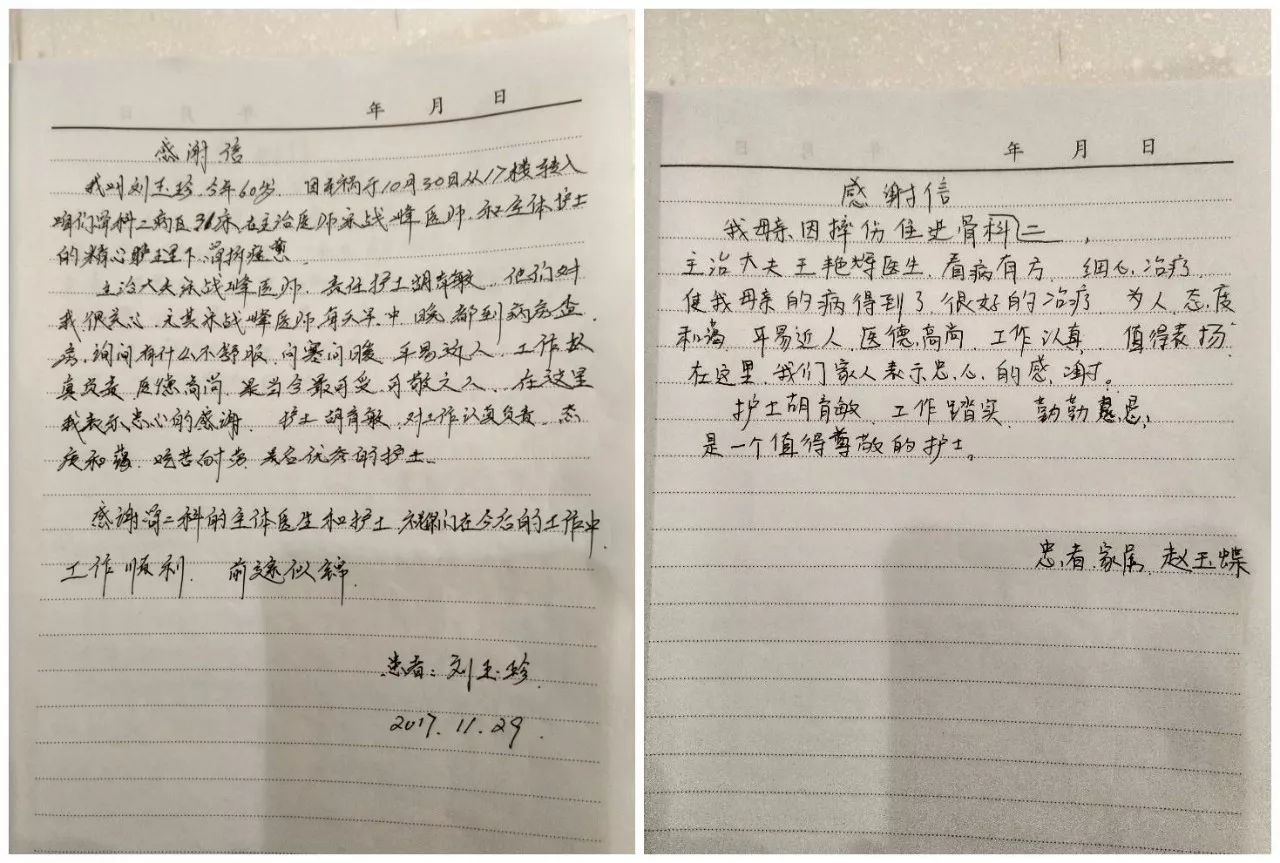 年 月 日
感谢信
我叫刘玉珍 今年60岁 因车祸于10月30日从17楼转入
咱们骨科二病区31床,在主治医师宋战峰医师,和全体护士
的精心护理下,骨折痊愈
主治大夫宋战峰医师,责任护士胡育敏,他们对
我很关心,尤其宋战峰医师,每天早.中.晚都到病房查
房,询问有什么不舒服,问寒问暖,平易近人,工作认
真负责,医德高尚,是当今最可爱,可敬之人,在这里
我表示忠心的感谢, 护士胡育敏,对工作认真负责,态
度和蔼,吃苦耐劳,是名优秀的护士。
感谢骨二科的全体医生和护士,祝你们在今后的工作中,
工作顺利, 前途似锦.
患者:刘玉珍.
2017.11.29.
年 月 日
感谢信
我母亲因摔伤住进骨科二,
主治大夫王艳辉医生,看病有方, 细心治疗,
使我母亲的病得到了很好的治疗,为人,态度
和蔼,平易近人,医德高尚,工作认真,值得表扬
在这里,我们家人表示忠心的感谢。
护士胡育敏,工作踏实,勤勤恳恳,
是一个值得尊敬的护士。
患者家属,赵玉蝶